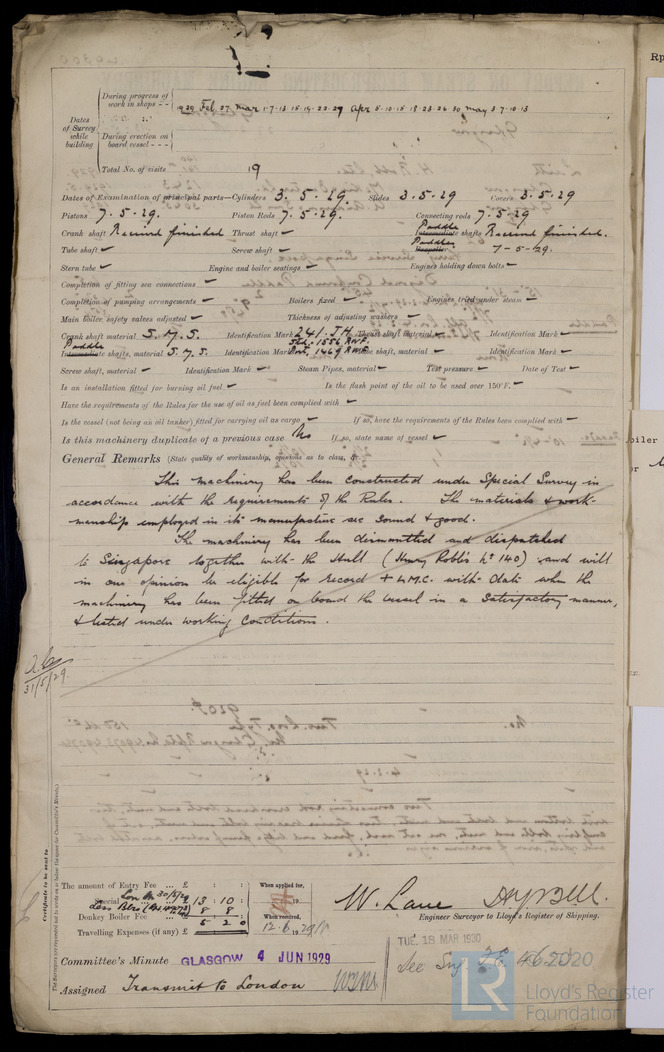 Dates of Survey while building
During progress of work in shops - -
1929 Feb 27 Mar 1-7-13-15-19-22-29 Apr 5-10-15-18-23-26-30 May 3-7-10-13
During erection on board vessel - - -
Total No. of visits 19
Dates of Examination of principal parts—Cylinders 3.5.29. Slides 3.5.29 Covers 3.5.29
Pistons 7.5.29. Piston Rods 7.5.29. Connecting rods 7.5.29
Crank shaft Received finished Thrust shaft ✓ Paddle Intermediate shafts Received finished.
Tube shaft ✓ Screw shaft ✓ Paddles Propeller 7-5-29.
Stern tube ✓ Engine and boiler seatings ✓ Engines holding down bolts ✓
Completion of fitting sea connections ✓
Completion of pumping arrangements ✓ Boilers fixed ✓ Engines tried under steam ✓
Main boiler safety valves adjusted ✓ Thickness of adjusting washers ✓
Crank shaft material S.M.S. Identification Mark 241.JH. Thrust shaft material ✓ Identification Mark ✓
Paddle Intermediate shafts, material S.M.S. Identification Marks Std. 1556 RWF. Port, 1469 RWF. Tube shaft, material ✓ Identification Mark ✓
Screw shaft, material ✓ Identification Mark ✓ Steam Pipes, material ✓ Test pressure ✓ Date of Test ✓
Is an installation fitted for burning oil fuel ✓ Is the flash point of the oil to be used over 150°F. ✓
Have the requirements of the Rules for the use of oil as fuel been complied with ✓
Is the vessel (not being an oil tanker) fitted for carrying oil as cargo ✓ If so, have the requirements of the Rules been complied with ✓
Is this machinery duplicate of a previous case No If so, state name of vessel ✓
General Remarks (State quality of workmanship, opinions as to class, &c.
This machinery has been constructed under Special Survey in
accordance with the requirements of the Rules. The materials & work-
manship employed in its manufacture are sound & good.
The machinery has been dismantled and dispatched
to Singapore together with the Hull (Henry Robb's No 140) and will
in our opinion be eligible for record + L.M.C. with date when the
machinery has been fitted on board the vessel in a satisfactory manner,
& tested under working conditions.
31/5/29
Certificate to be sent to
The amount of Entry Fee ... £ : : When applied for,
Special 13 : 10 :
8 8
Donkey Boiler Fee ... 5 2 0 When received,
Travelling Expenses (if any) £ : : 12.6.1929
W. Lane
Engineer Surveyor to Lloyd's Register of Shipping.
Committee's Minute GLASGOW 4 JUN 1929
TUE. 18 MAR 1930
Assigned Transmit to London
© 2020
LR
Lloyd's Register
Foundation